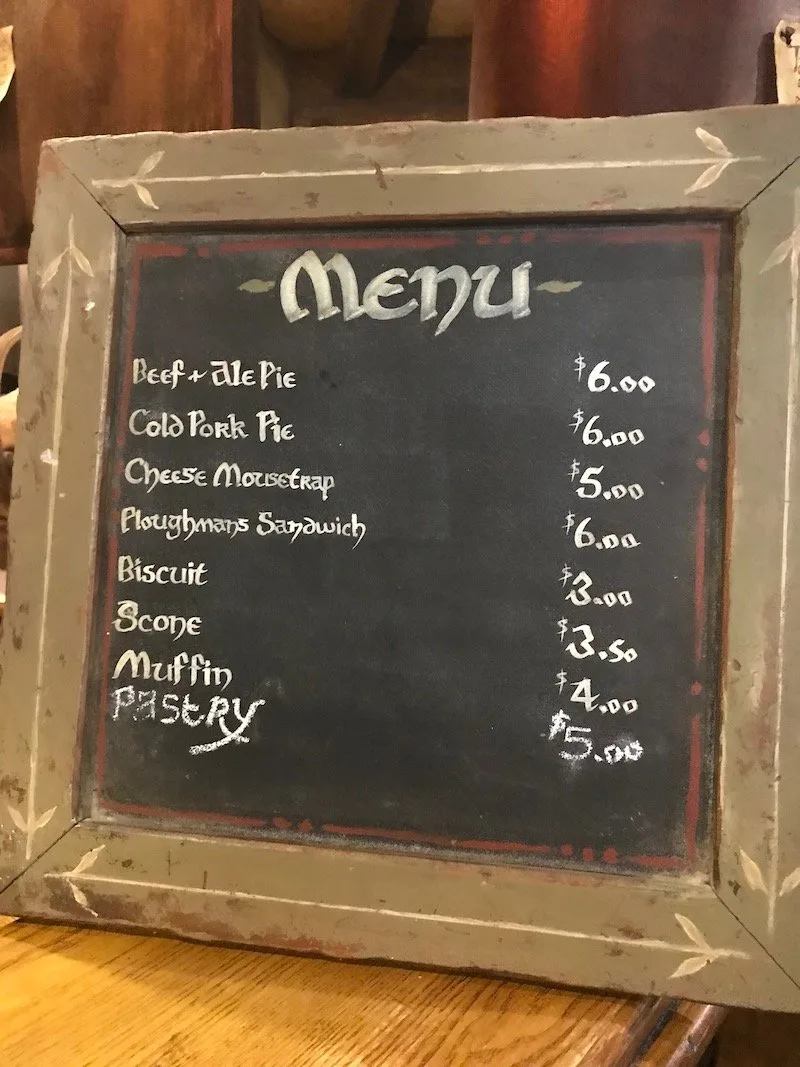 Menu
Beef + Ale Pie $6.00
Cold Pork Pie $6.00
Cheese Mousetrap $5.00
Ploughmans Sandwich $6.00
Biscuit $3.00
Scone $3.50
Muffin $4.00
Pastry $5.00